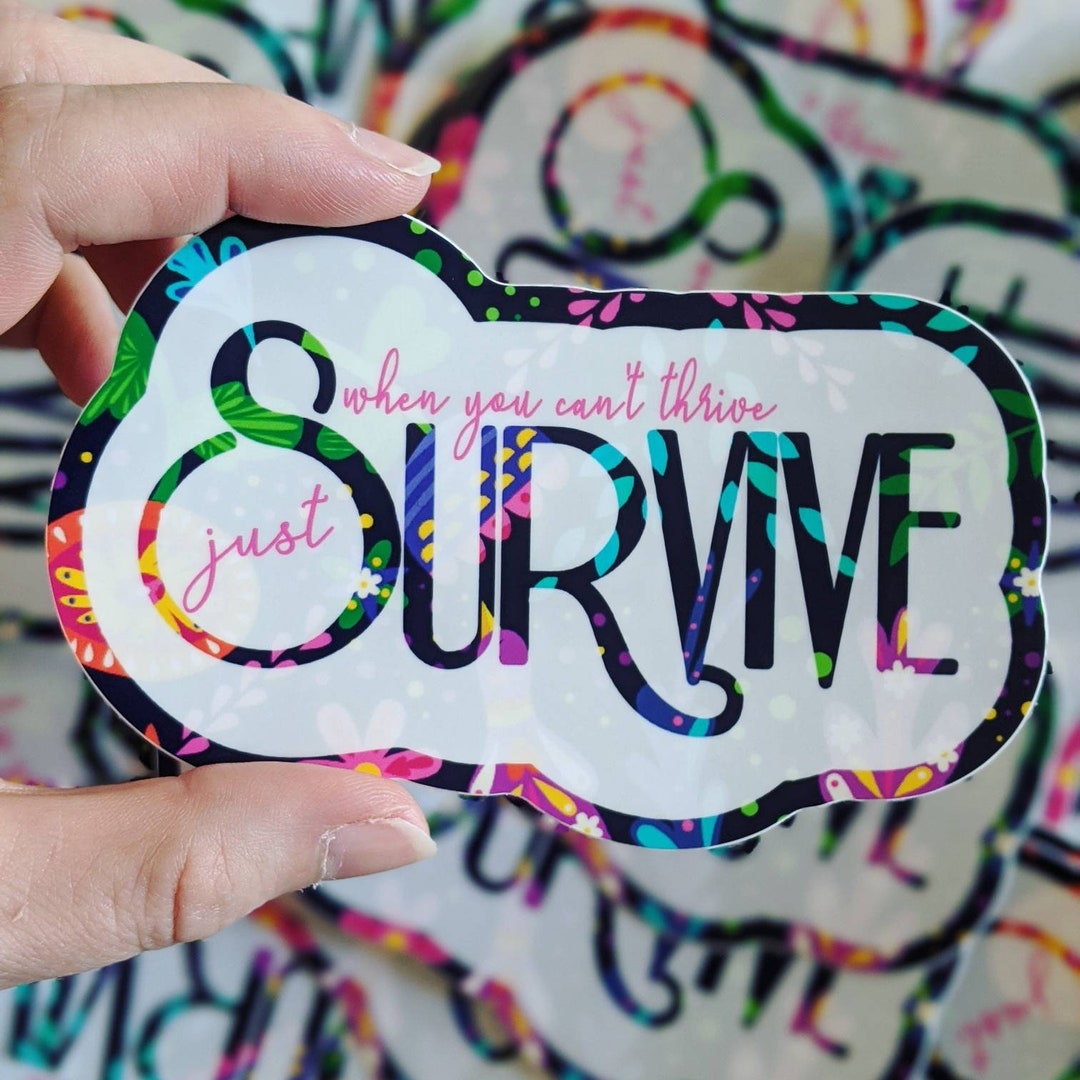 when you can't thrive
just
SURVIVE